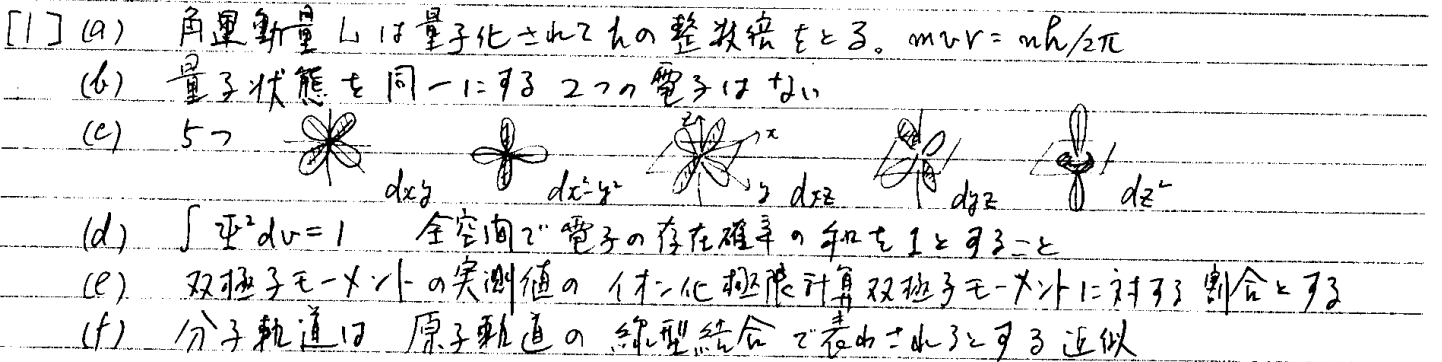 [1] (a) 角運動量 L は量子化されてħの整数倍をとる。 mvr = nh/2π
(b) 量子状態を同一にする2つの電子はない
(c) 5つ
z x
dxy dx²-y² y dxz dyz dz²
(d) ∫Ψ²dv = 1 全空間で電子の存在確率の和を1とすること
(e) 双極子モーメントの実測値のイオン化極限計算双極子モーメントに対する割合とする
(f) 分子軌道は 原子軌道の 線型結合で表わされるとする近似